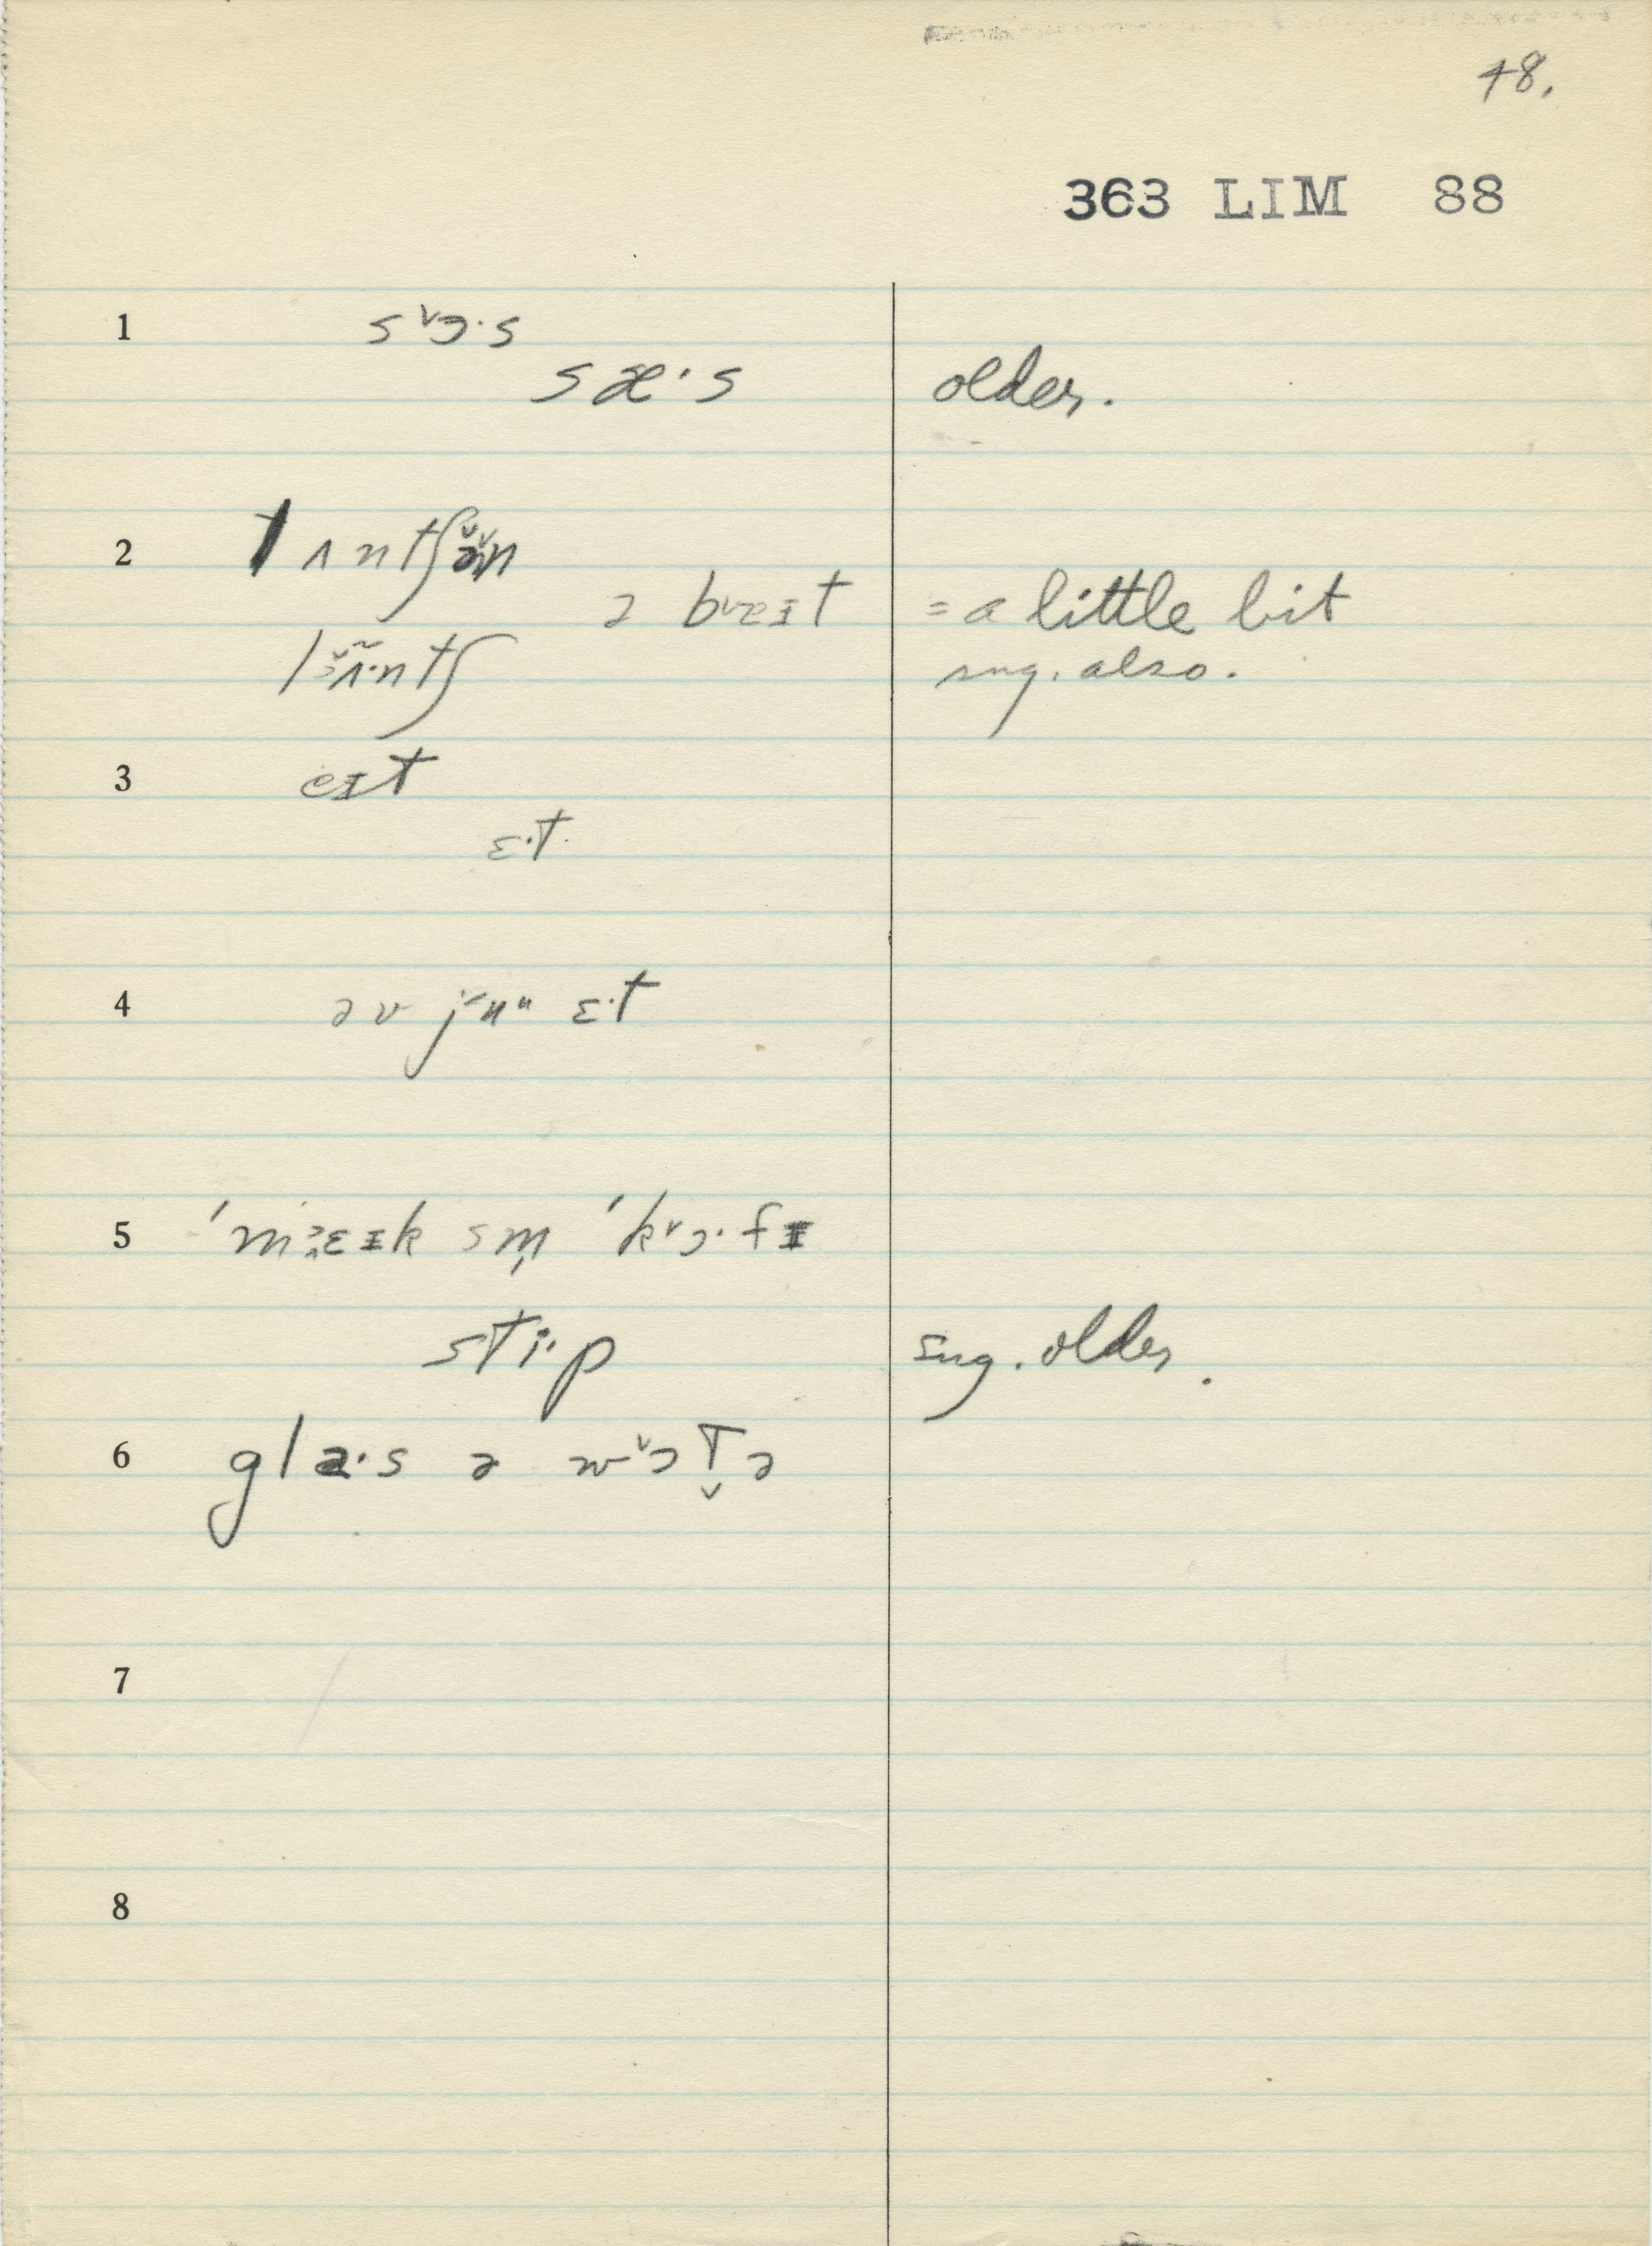 48.
363 LIM 88
1 s ˅ɔ·s
sæ·s older.
2 lʌntʃə̆n
ə b˅ɛɪt = a little bit
lɜ̆ʌ̃·ntʃ sug. also.
3 eɪt
ɛ·t
4 əv jɪ̈nʉ ɛ·t
5 ˈmɛɪk sm̩ ˈk˅ɔ·fɪ
sti·p sug. older.
6 gla·s ə w˅ɔT̬ə
7
8